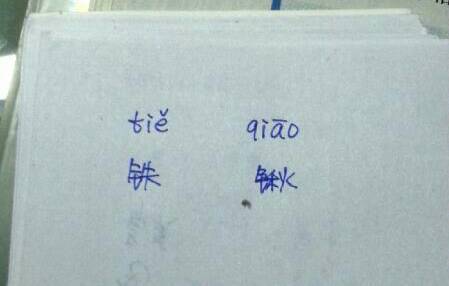 tiě qiāo
铁 锹